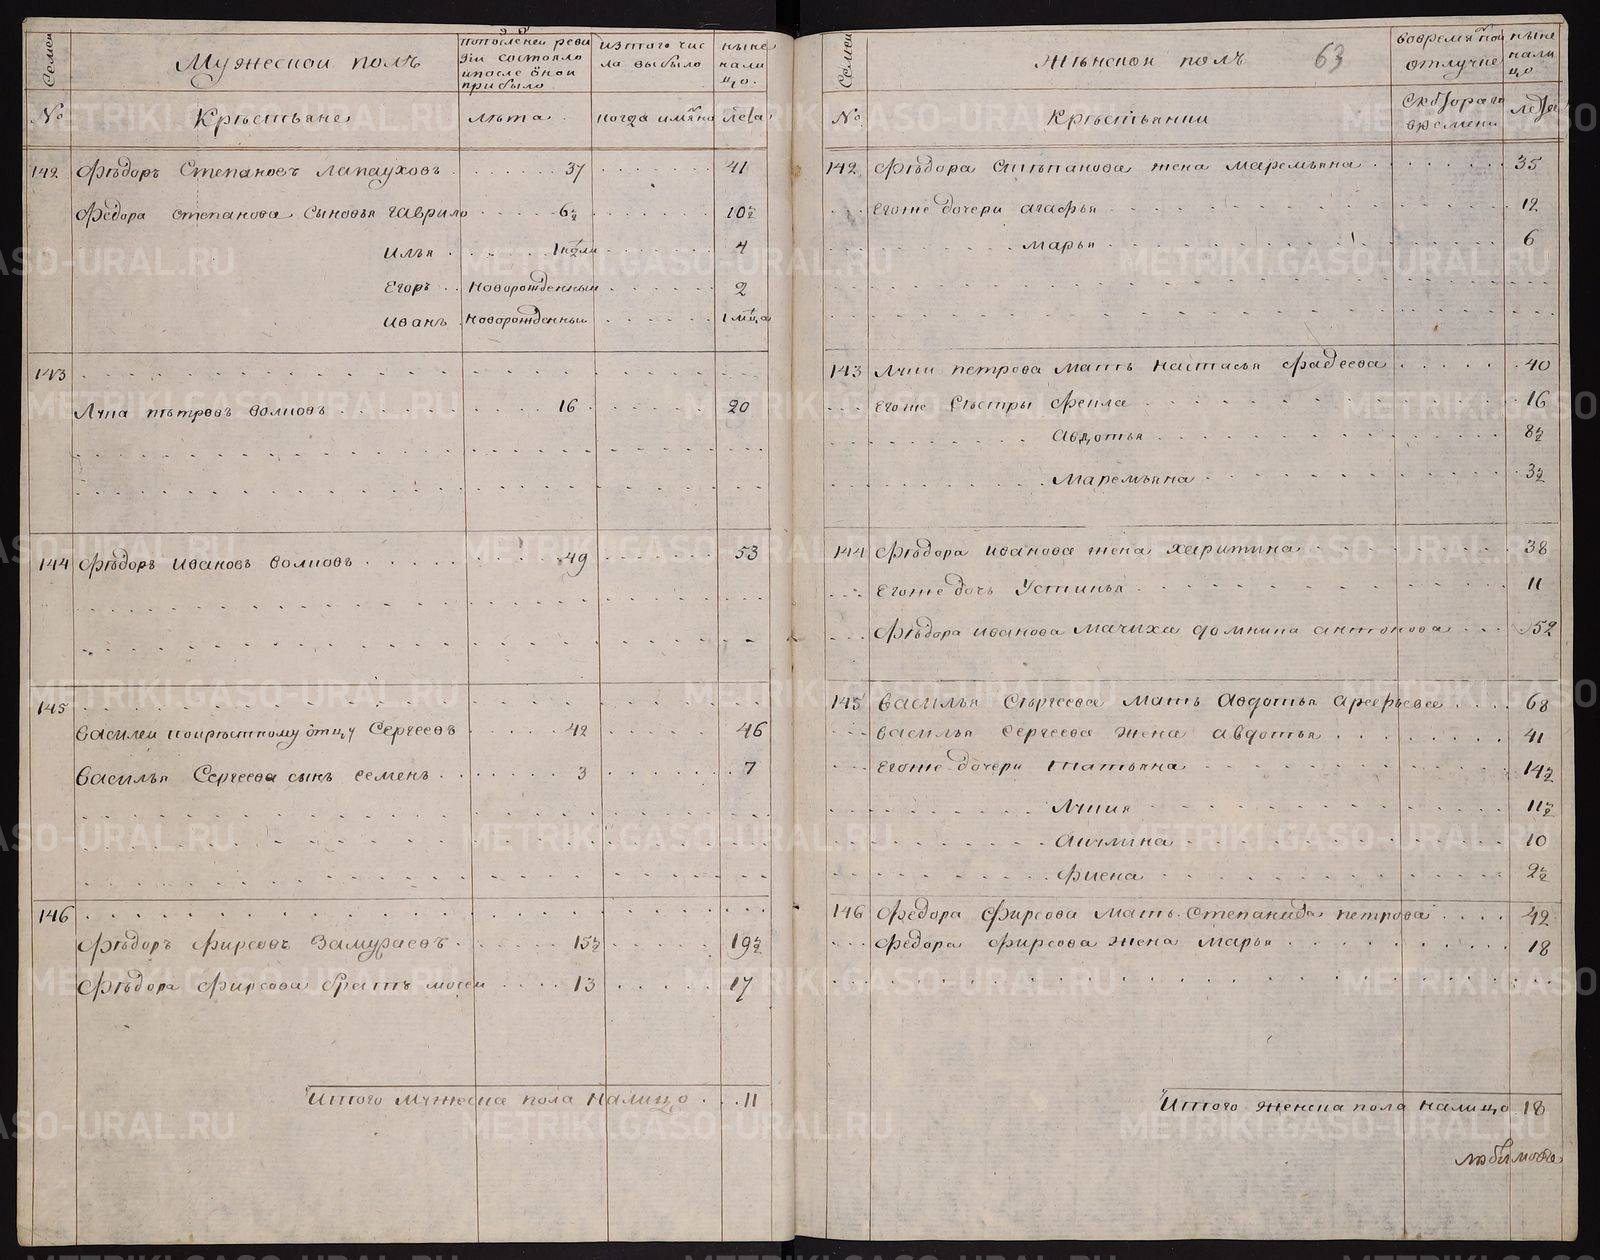 Семеи
Мужескои полъ
попослѣднеи реви
зіи состояло
ипосле онои
прибыло
изтого чис
ла выбыло
ныне
нали
цо.
№
Крѣстьяне
лѣта
когда имянно
лета
142 Фѣдоръ Степановъ лапауховъ 37 41
Федора степанова сыновья гаврило 6½ 10½
Илья 4
Егоръ новорожденныи 2
Иванъ новорожденныи 1 м͞ца
143
Лука пѣтровъ волковъ 16 20
144 Фѣдоръ ивановъ волковъ 49 53
145
Василеи покрѣстному отцу Сергеевъ 42 46
Василья Сергеева сынъ семенъ 3 7
146
Фѣдоръ фирсовъ Замураевъ 15½ 19½
Фѣдора фирсова братъ мосеи 13 17
Итого мужеска пола налицо 11
Семеи
Жѣнскои полъ
63
вовремяннои
отлучке
ныне
нали
цо
№
Крѣстьянки
Скоторагo
времени
лета
142 Фѣдора стѣпанова жена маремьяна 35
Егоже дочери агафья 12
марья 6
143 Луки петрова мать настасья фадеева 40
Егоже сѣстры фекла 16
авдотья 8½
маремьяна 3½
144 Фѣдора иванова жена харитина 38
Егоже дочь Устинья 11
Фѣдора иванова мачиха домника антонова 52
145 Василья Сѣргеева мать авдотья арсфьева 68
Василья сергеева жена авдотья 41
Егоже дочери татьяна 14½
Лукия 11½
акулина 10
фиена 2½
146 Федора фирсова мать Степанида петрова 42
Федора фирсова жена марья 18
Итого женска пола налицо 18
METRIKI.GASO-URAL.RU